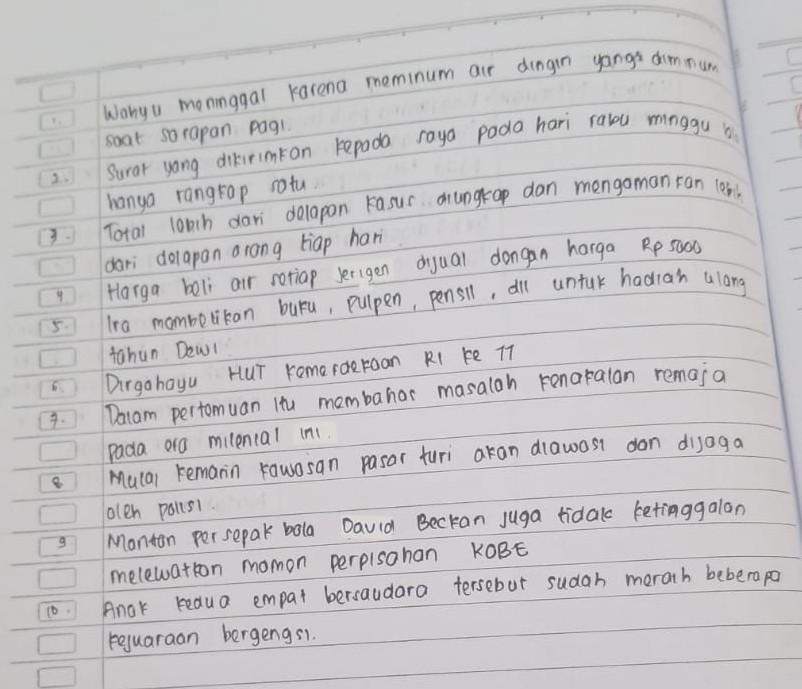 1. Wahyu meninggal karena meminum air dingin yang diminum
saat sarapan pagi.
2. Surat yang dikirimkan kepada saya pada hari rabu minggu
hanya rangkap satu.
3. Total lebih dari delapan kasus diungkap dan mengamankan lebih
dari delapan orang tiap hari.
4. Harga beli air setiap jerigen dijual dengan harga Rp 5000
5. Ira membelikan buku, pulpen, pensil, dll untuk hadiah ulang
tahun Dewi
6. Dirgahayu HUT kemerdekaan RI ke 77
7. Dalam pertemuan itu membahas masalah kenakalan remaja
pada era milenial ini.
8 Mulai kemarin kawasan pasar turi akan diawasi dan dijaga
oleh polisi.
9 Mantan persepak bola David Beckan juga tidak ketinggalan
melewatkan momen perpisahan KOBE
10. Anak kedua empat bersaudara tersebut sudah meraih beberapa
kejuaraan bergengsi.